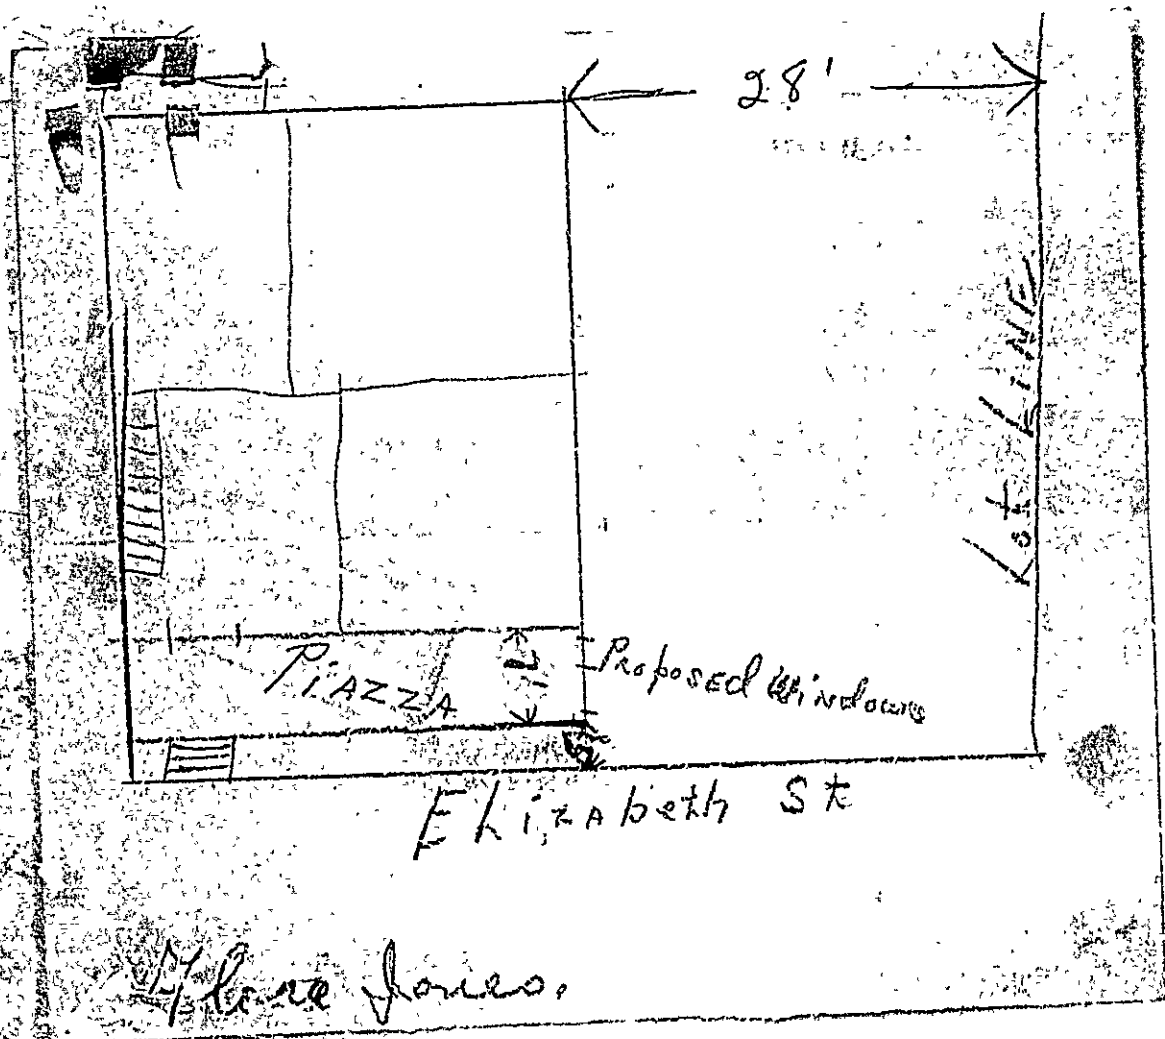 28'
Lot LiNE
PiAZZA 7'
Proposed Windows
Elizabeth St
Flora Jones.